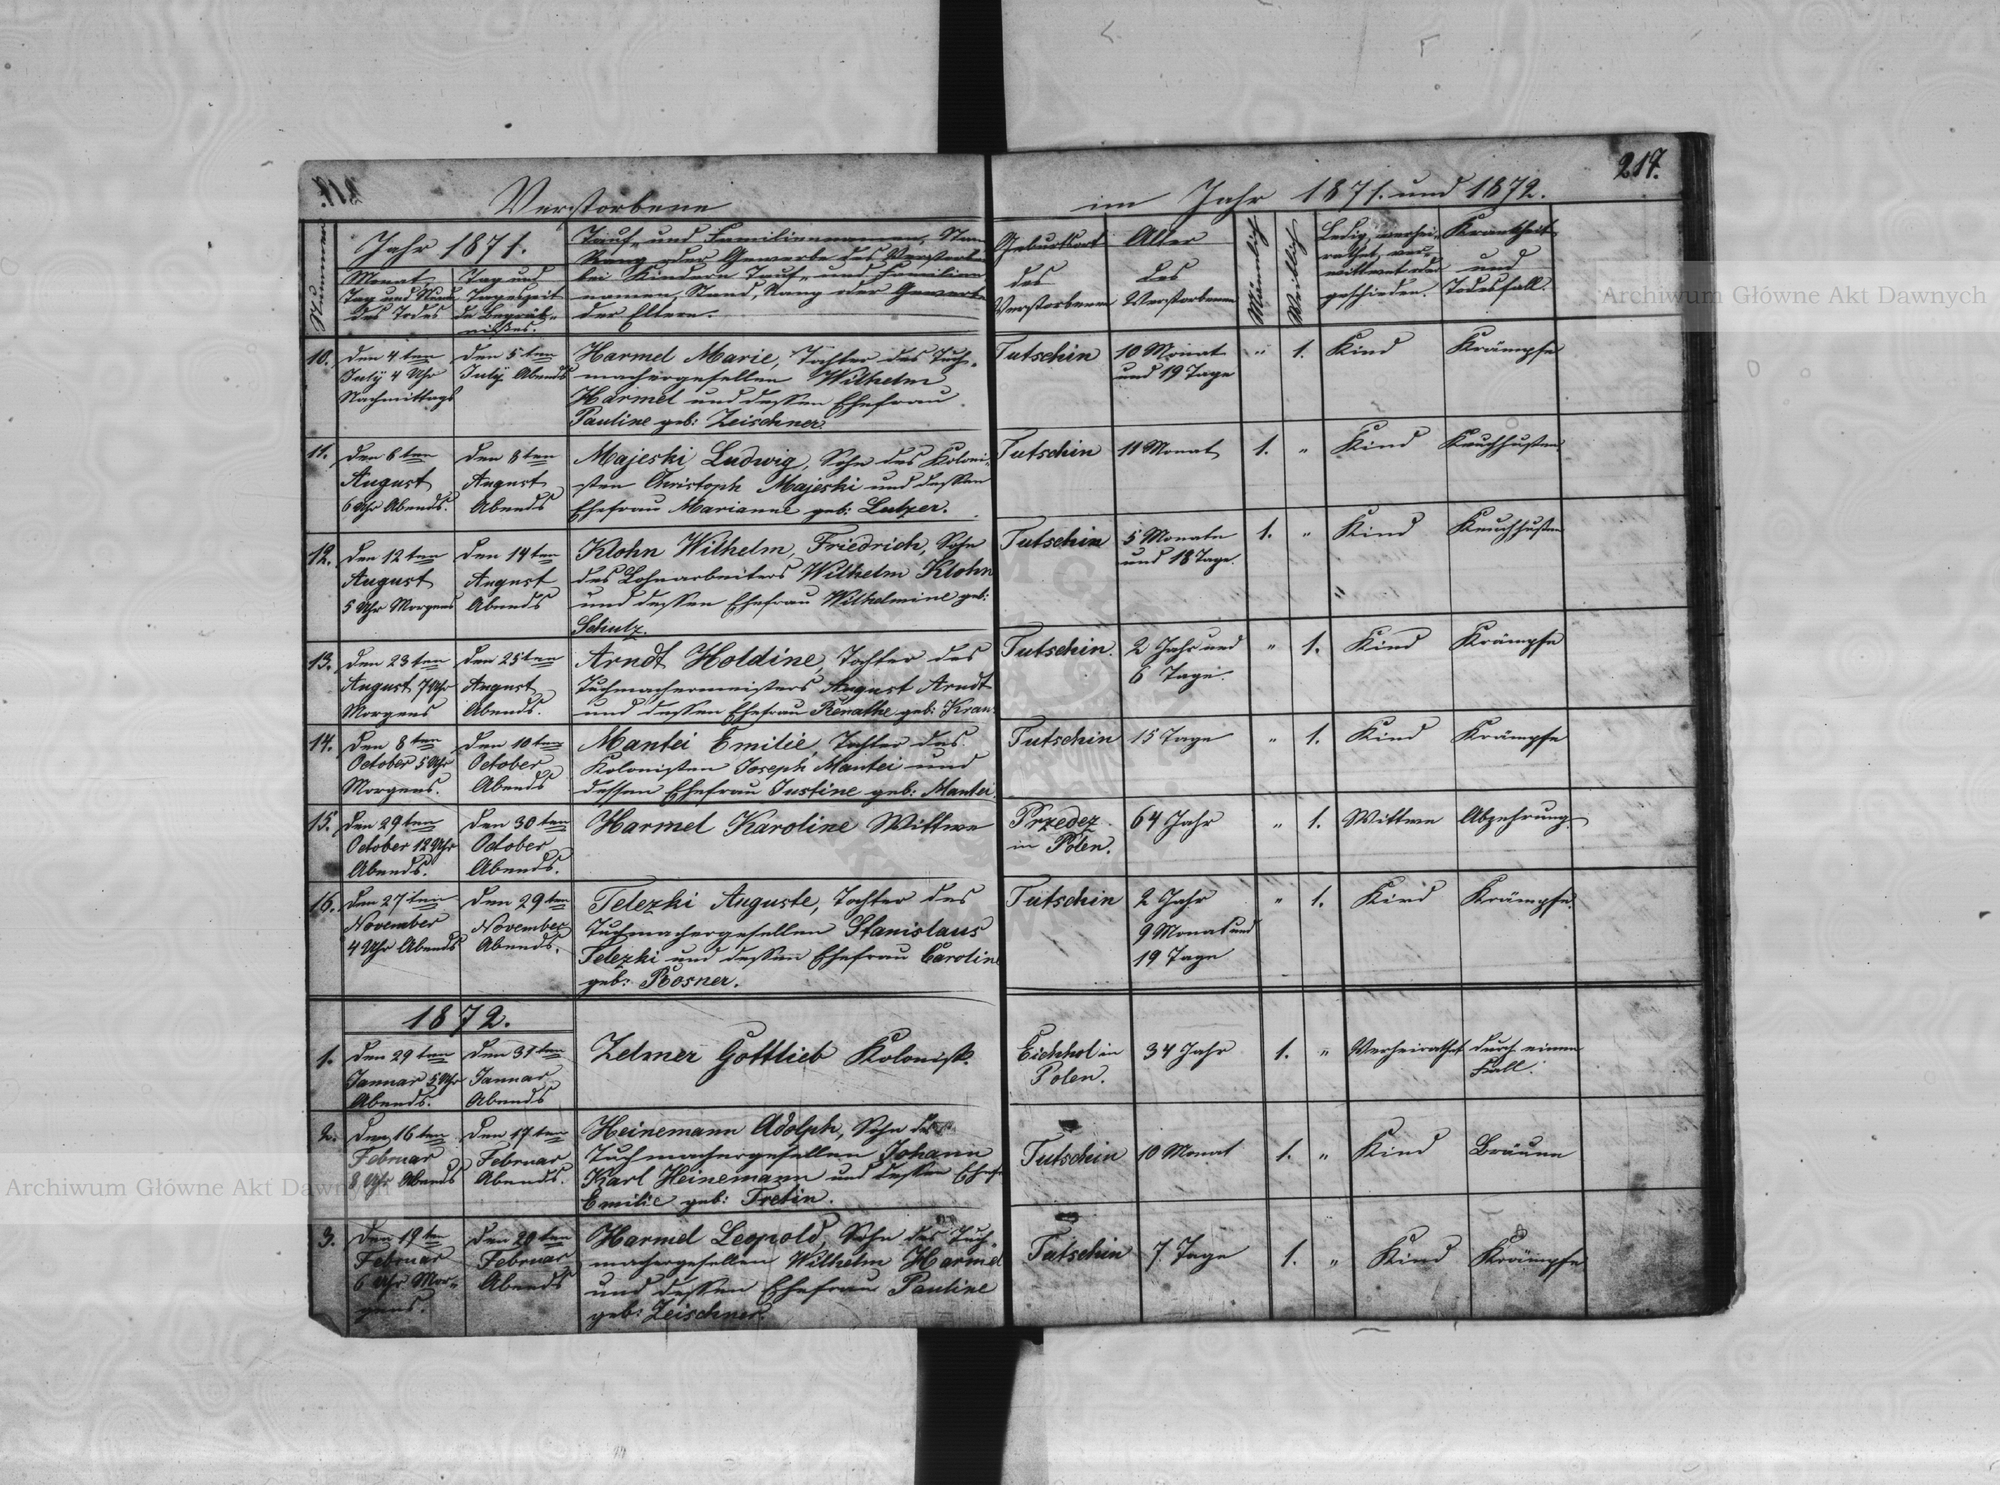 217.
Verstorbene im Jahr 1871. und 1872.
Nummer
Jahr 1871.
Monat,
Tag und Stunde
des Todes
Tag und
Tageszeit
des Begräb-
nißes.
Tauf- und Familiennamen, Stand
Rang oder Gewerbe des Verstorbenen
bei Kindern Tauf- und Familien
namen, Stand, Rang oder Gewerbe
der Eltern.
Geburtsort
des
Verstorbenen
Alter
des
Verstorbenen
Männlich
Weiblich
Ledig, verhei-
rathet, ver-
wittwet oder
geschieden.
Krankheit
und
Todesfall.
10.
den 4ten
July 4 Uhr
Nachmittags
den 5ten
July Abends
Harmel Marie, Tochter des Tuch-
machergesellen Wilhelm
Harmel und dessen Ehefrau
Pauline geb: Zeischner.
Tutschin
10 Monat
und 19 Tage
" 1.
Kind
Krämpfe
11.
den 6ten
August
6 Uhr Abends.
den 8ten
August
Abends
Majeski Ludwig, Sohn des Koloni-
sten Christoph Majeski und dessen
Ehefrau Marianne geb: Lutzer.
Tutschin
11 Monat
1. "
Kind
Keuchhusten
12.
den 12ten
August
5 Uhr Morgens
den 14ten
August
Abends
Klohn Wilhelm, Friedrich, Sohn
des Lohnarbeiters Wilhelm Klohn
und dessen Ehefrau Wilhelmine geb:
Schulz.
Tutschin
5 Monate
und 18 Tage.
1. "
Kind
Keuchhusten
"
13.
den 23ten
August 7 Uhr
Morgens
den 25ten
August
Abends.
Arndt Holdine, Tochter des
Tuchmachermeisters August Arndt
und dessen Ehefrau Renathe geb: Kran
Tutschin.
2 Jahr und
6 Tage.
" 1.
Kind
Krämpfe
14.
den 8ten
October 5 Uhr
Morgens.
den 10ten
October
Abends
Mantei Emilie, Tochter des
Kolonisten Joseph Mantei und
dessen Ehefrau Justine geb: Mantei.
Tutschin
15 Tage
" 1.
Kind
Krämpfe
15.
den 29ten
October 12 Uhr
Abends.
den 30ten
October
Abends.
Harmel Karoline Wittwe
Przedez
in Polen.
64 Jahr
" 1.
Wittwe
Abzehrung
16.
den 27ten
November
4 Uhr Abends
den 29ten
November
Abends.
Telezki Auguste, Tochter des
Tuchmachergesellen Stanislaus
Telezki und dessen Ehefrau Caroline
geb: Posner.
Tutschin
2 Jahr
9 Monat und
19 Tage
" 1.
Kind
Krämpfe.
1872.
1.
den 29ten
Januar 5 Uhr
Abends.
den 31ten
Januar
Abends
Zelmer Gottlieb Kolonist.
Eichhol in
Polen.
34 Jahr
1. "
Verheirathet
durch einen
Fall.
2.
den 16ten
Februar
8 Uhr Abends
den 17ten
Februar
Abends.
Heinemann Adolph, Sohn des
Tuchmachergesellen Johann
Karl Heinemann und dessen Ehefr
Emilie geb: Tretin.
Tutschin
10 Monat
1. "
Kind
Bräune
3.
den 19ten
Februar
6 Uhr Mor-
gens.
den 20ten
Februar
Abends
Harmel Leopold, Sohn des Tuch-
machergesellen Wilhelm Harmel
und dessen Ehefrau Pauline
geb: Zeischner.
Tutschin
7 Tage
1. "
Kind
Krämpfe
Archiwum Główne Akt Dawnych
Archiwum Główne Akt Dawnych